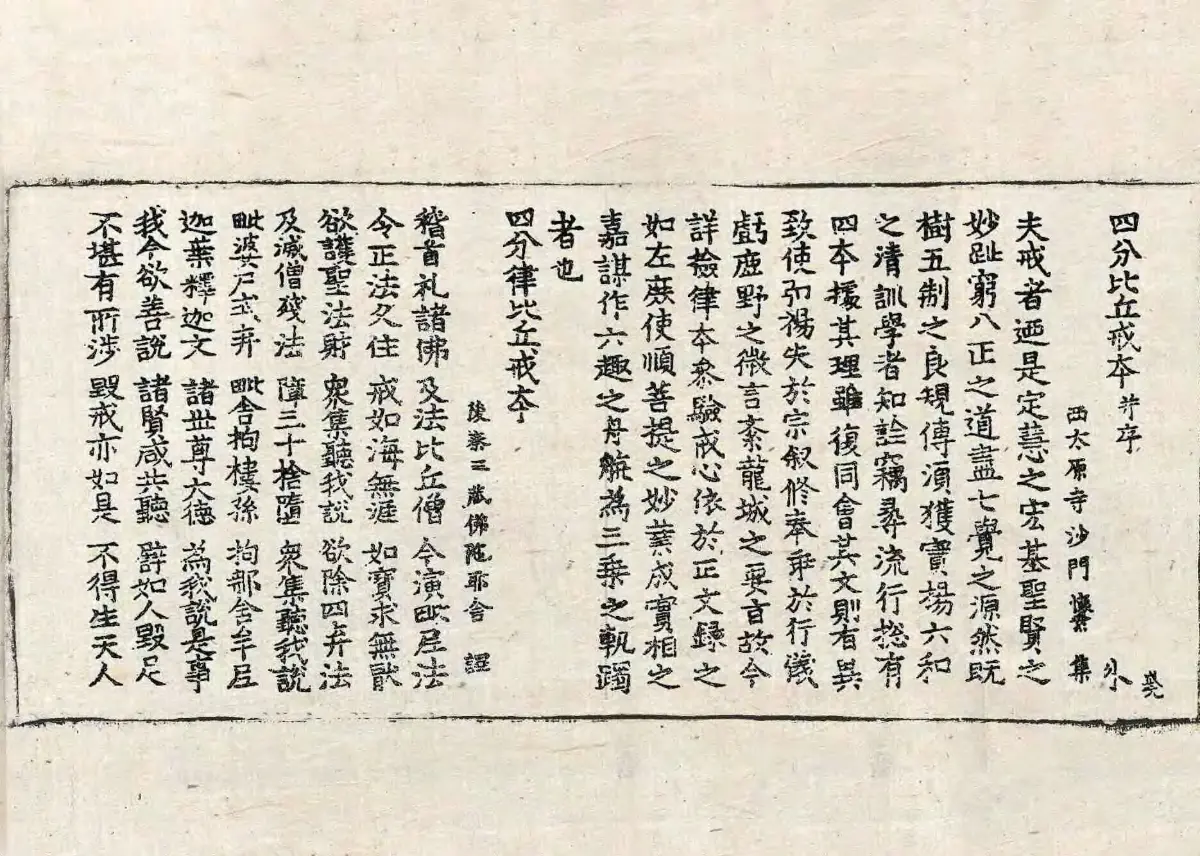 四分比丘戒本 并序
西太原寺沙門懷素 集 外
夫戒者迺是定慧之宏基聖賢之
妙趾窮八正之道盡七覺之源然既
樹五制之良規傳須獲寶揚六和
之清訓學者知詮竊尋流行揔有
四本據其理雖復同會其文則有異
致使弘揚失於宗叙修奉乖於行儀
虧鹿野之微言紊龍城之要旨故今
詳撿律本參驗戒心依於正文錄之
如左庶使順菩提之妙業成實相之
嘉謀作六趣之舟航為三乗之軌躅
者也
四分律比丘戒本
後秦三藏佛陀耶舍 譯
稽首礼諸佛 及法比丘僧 今演毗尼法
令正法久住 戒如海無涯 如寶求無猒
欲護聖法財 衆集聽我說 欲除四弃法
及滅僧殘法 障三十捨墮 衆集聽我說
毗婆尸式弃 毗舍拘樓孫 拘那含牟尼
迦葉釋迦文 諸世尊大德 為我說是事
我今欲善說 諸賢咸共聽 譬如人毀足
不堪有所涉 毀戒亦如是 不得生天人